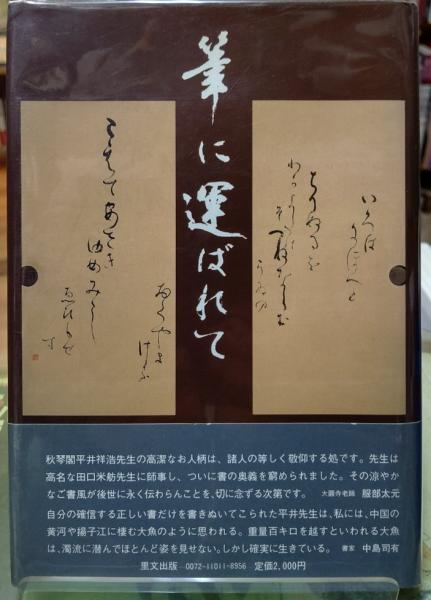 筆に運ばれて
いろは
にほへと
ちりぬるを
わかよたれ
そつねならむ
うゐの
おくやま
けふ
こえてあさき
ゆめみし
ゑひもせす
秋琴閣平井祥浩先生の高潔なお人柄は、諸人の等しく敬仰する処です。先生は
高名な田口米舫先生に師事し、ついに書の奥義を窮められました。その涼やか
なご書風が後世に永く伝わらんことを、切に念ずる次第です。 大圓寺老師 服部太元
自分の確信する正しい書だけを書きぬいてこられた平井先生は、私には、中国の
黄河や揚子江に棲む大魚のように思われる。重量百キロを越すといわれる大魚
は、濁流に潜んでほとんど姿を見せない。しかし確実に生きている。 書家 中島司有
里文出版 0072-11011-8956 定価2,000円